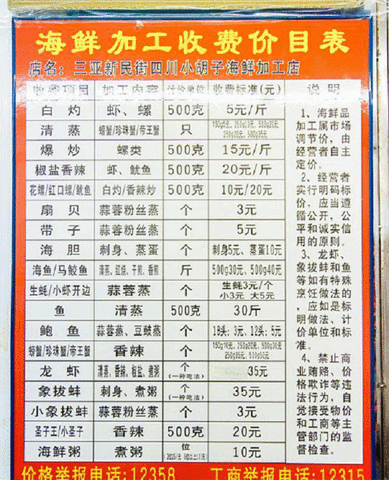 海鲜加工收费价目表
店名：三亚新民街四川小胡子海鲜加工店
收费项目 加工内容 计价单位 收费标准(元) 说明
白灼 虾、螺 500克 5元/斤
清蒸 螃蟹/珍珠蟹/帝王蟹 只
爆炒 螺类 500克 15元/斤
椒盐香辣 虾、鱿鱼 500克 20元/斤
花螺/红口螺/鱿鱼 白灼/香辣炒 500克 10元/20元
扇贝 蒜蓉粉丝蒸 个 3元
带子 蒜蓉粉丝蒸 个 5元
海胆 刺身、蒸蛋 个 刺身5元、蒸蛋10元
海鱼/马鲛鱼 斤 500g30元、500g40元
生蚝/小虾开边 蒜蓉蒸 个 生蚝3元/个
小3元 大5元
鱼 清蒸 500克 30斤
鲍鱼 蒜蓉蒸、豆豉蒸 个 18头：3元、12头：5元
螃蟹/珍珠蟹/帝王蟹 香辣 个
龙虾 个
(一种吃法) 35元
象拔蚌 刺身、煮粥 个
(一种吃法) 35元
小象拔蚌 蒜蓉粉丝蒸 个 3元
圣子王/小圣子 香辣 500克 20元
海鲜粥 煮粥 位 10元
1、海鲜品
加工属市场
调节价，由
经营者自主
定价。
2、经营者
实行明码标
价，应当遵
循公开，公
平和诚实信
用的原则。
3、龙虾、
象拔蚌和鱼
等如有特殊
烹饪做法
的，应如是标
明做法、计
价单位和标
准。
4、禁止商
业贿赂、价
格欺诈等违
法行为，自
觉接受物价
和工商等主
管部门的监
督检查。
价格举报电话:12358 工商举报电话:12315